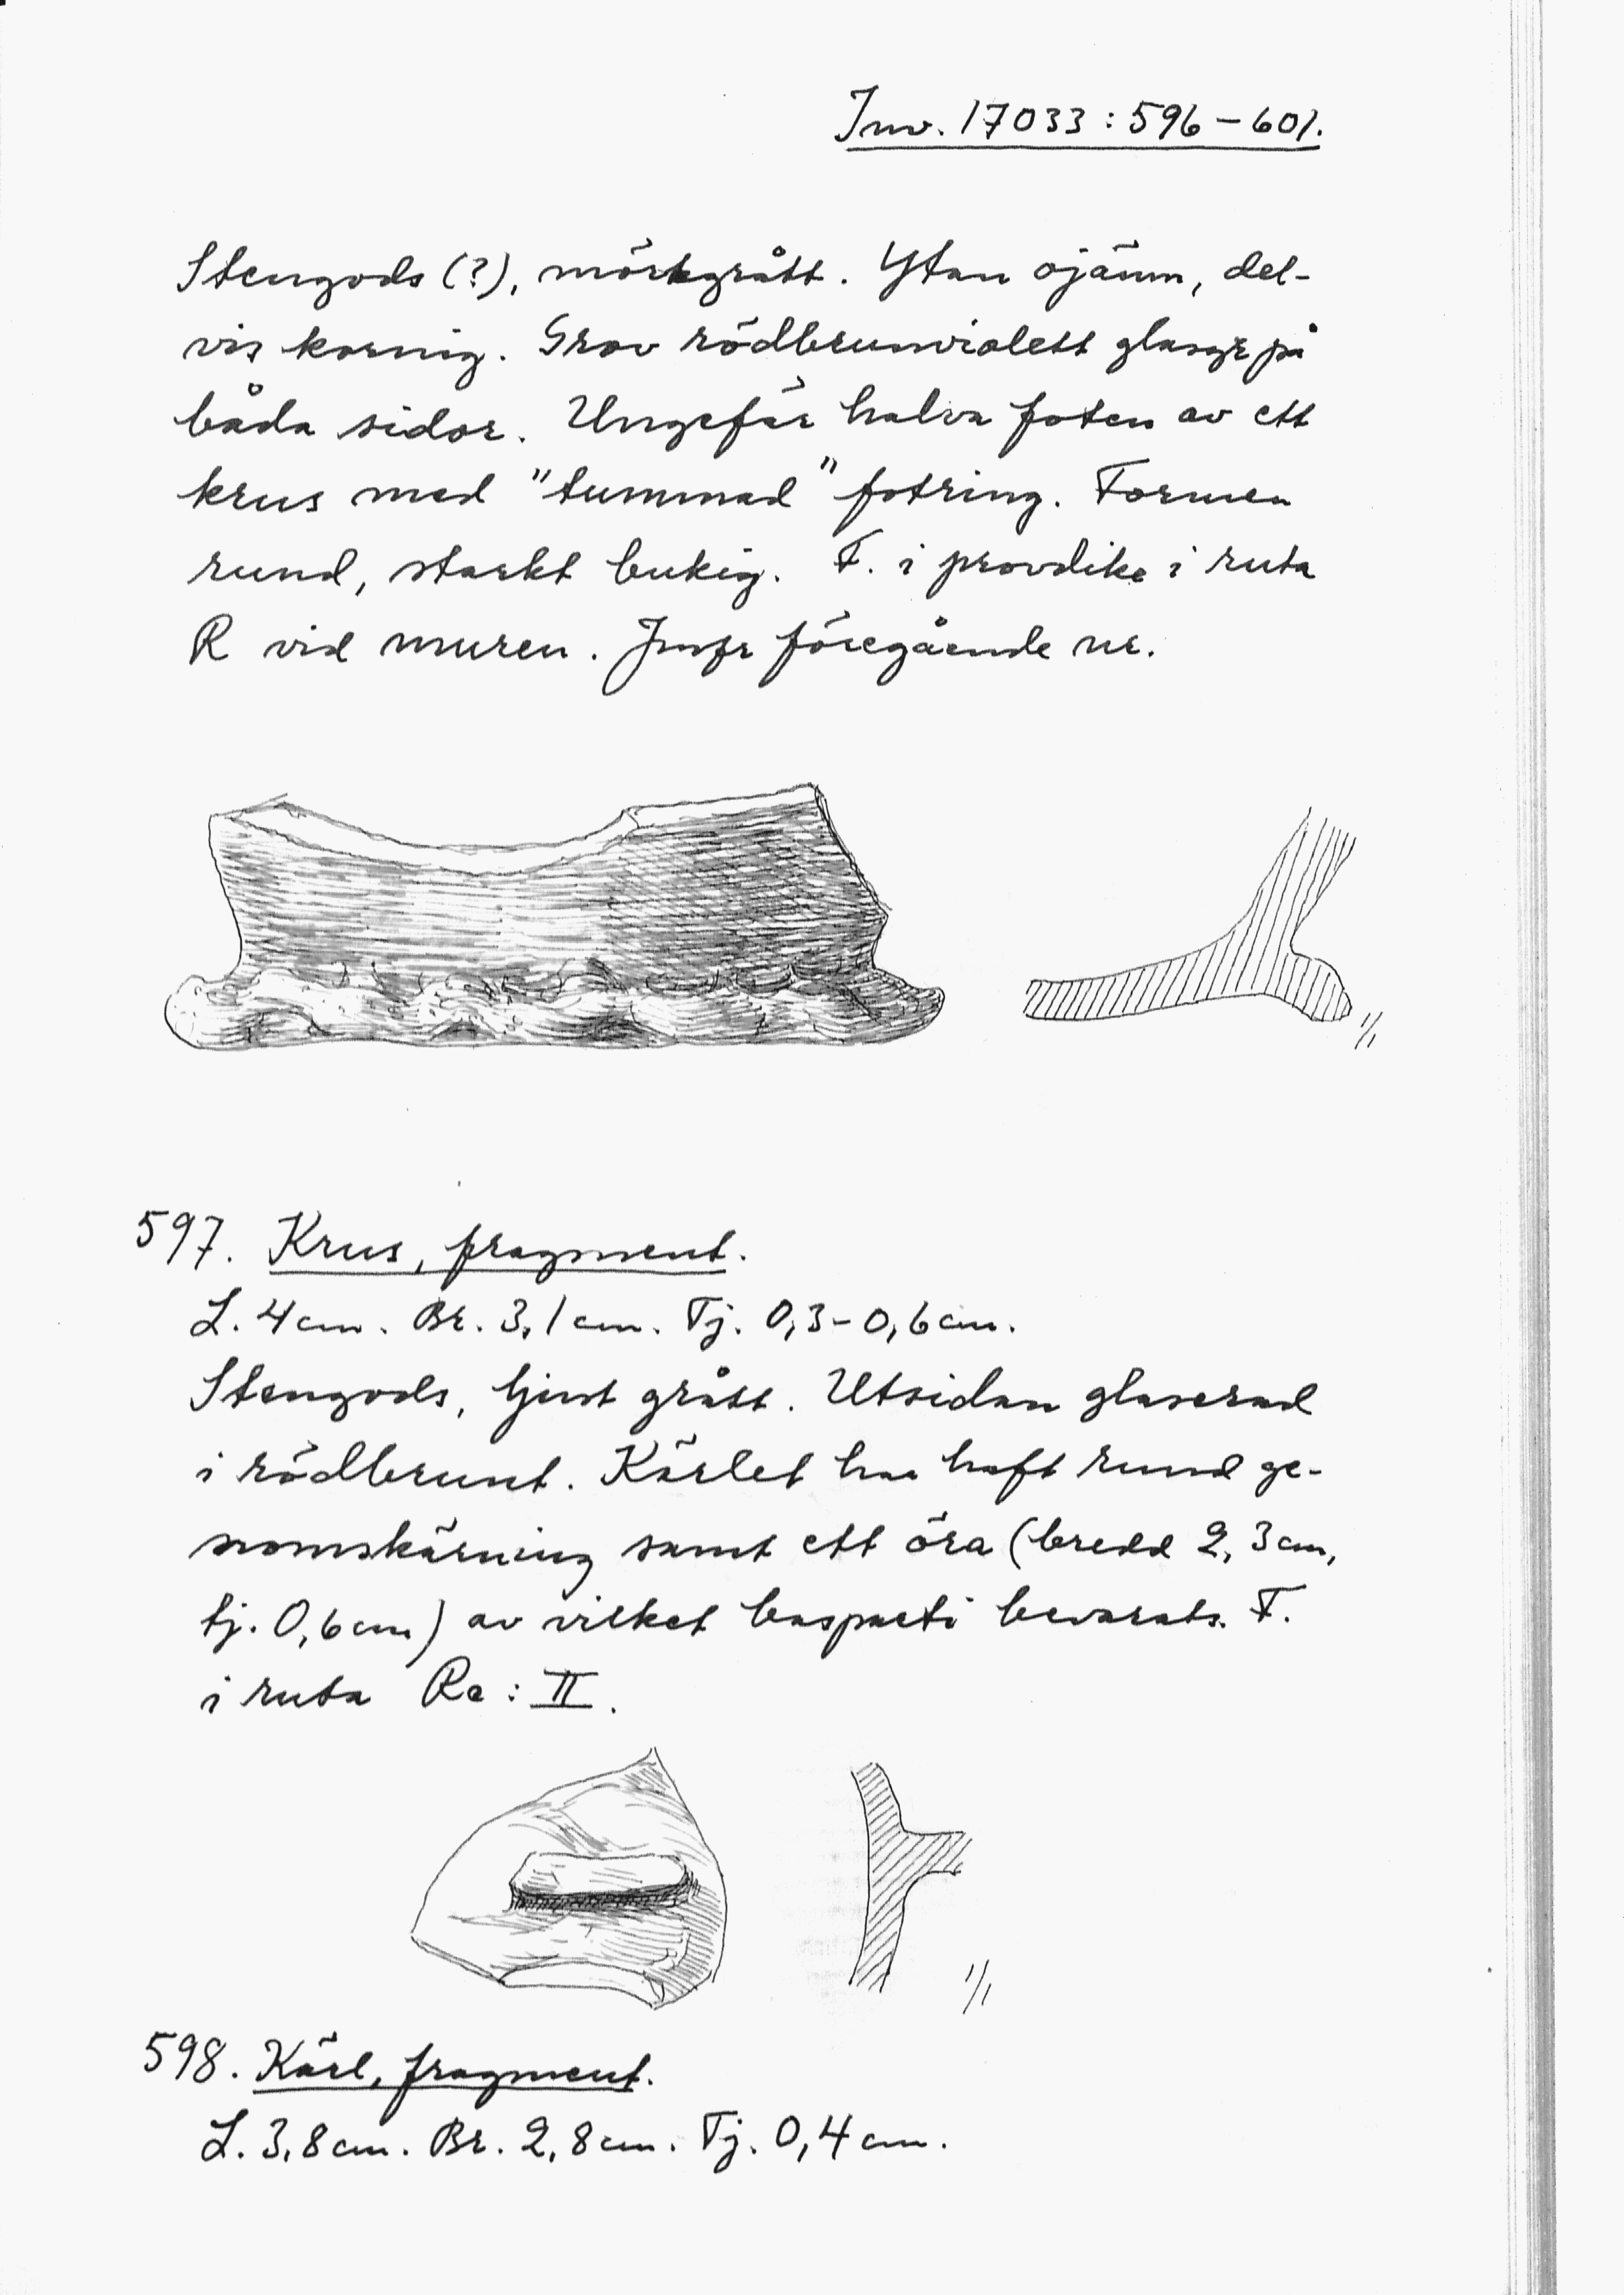 Inv. 17033:596-601.
Stengods (?), mörkgrått. Ytan ojämn, del-
vis kornig. Grov rödbrunviolett glasyr på
båda sidor. Ungefär halva foten av ett
krus med "tummad" fotring. Formen
rund, starkt bukig. F. i provdike i ruta
R vid muren. Jmfr föregående nr.
1/1
597. Krus, fragment.
L. 4 cm. Br. 3,1 cm. Tj. 0,3-0,6 cm.
Stengods, ljust grått. Utsidan glaserad
i rödbrunt. Kärlet har haft rund ge-
nomskärning samt ett öra (bredd 2,3 cm,
tj. 0,6 cm) av vilket basparti bevarats. F.
i ruta Ra: II.
1/1
598. Kärl, fragment.
L. 3,8 cm. Br. 2,8 cm. Tj. 0,4 cm.